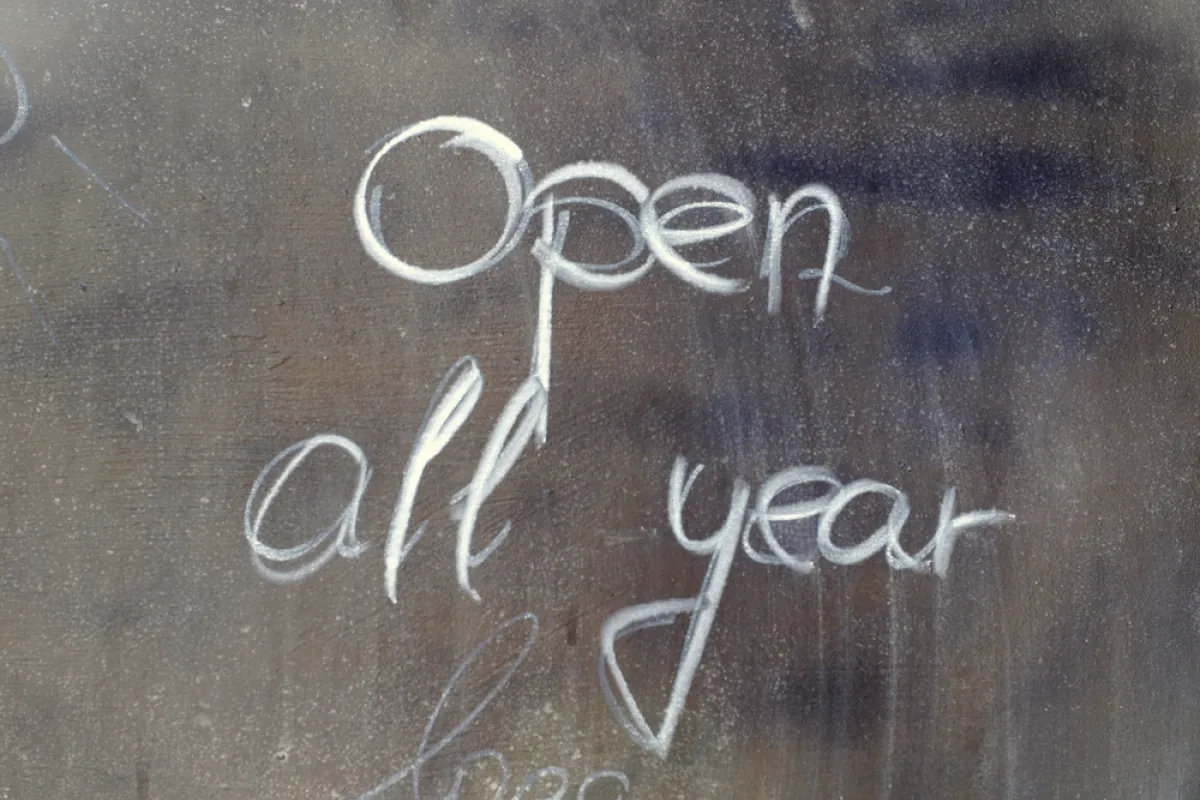 Open
all year